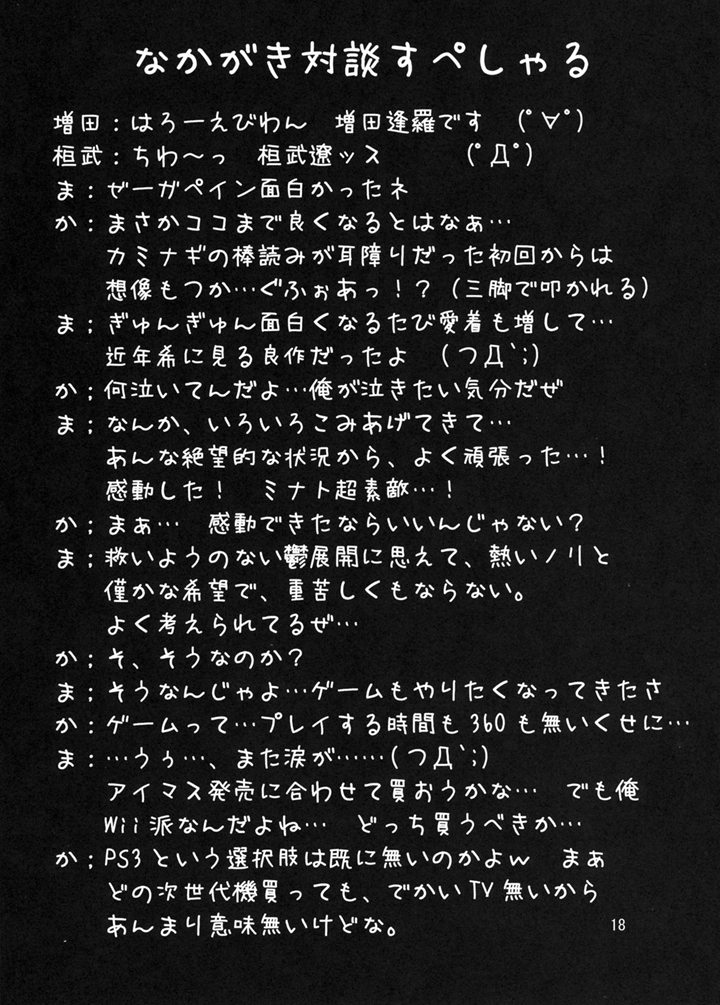 なかがき対談すぺしゃる
増田：はろーえびわん　増田逢羅です　(ﾟ∀ﾟ)
桓武：ちわ～っ　桓武遼ッス　(ﾟДﾟ)
ま；ゼーガペイン面白かったネ
か：まさかココまで良くなるとはなぁ…
カミナギの棒読みが耳障りだった初回からは
想像もつか…ぐふぉあっ！？（三脚で叩かれる）
ま；ぎゅんぎゅん面白くなるたび愛着も増して…
近年希に見る良作だったよ　(つД`;)
か；何泣いてんだよ…俺が泣きたい気分だぜ
ま；なんか、いろいろこみあげてきて…
あんな絶望的な状況から、よく頑張った…！
感動した！　ミナト超素敵…！
か；まぁ…　感動できたならいいんじゃない？
ま；救いようのない鬱展開に思えて、熱いノリと
僅かな希望で、重苦しくもならない。
よく考えられてるぜ…
か；そ、そうなのか？
ま；そうなんじゃよ…ゲームもやりたくなってきたさ
か：ゲームって…プレイする時間も360も無いくせに…
ま：…うぅ…、また涙が……(つД`;)
アイマス発売に合わせて買おうかな…　でも俺
Wii派なんだよね…　どっち買うべきか…
か；PS3という選択肢は既に無いのかよw　まぁ
どの次世代機買っても、でかいTV無いから
あんまり意味無いけどな。
18